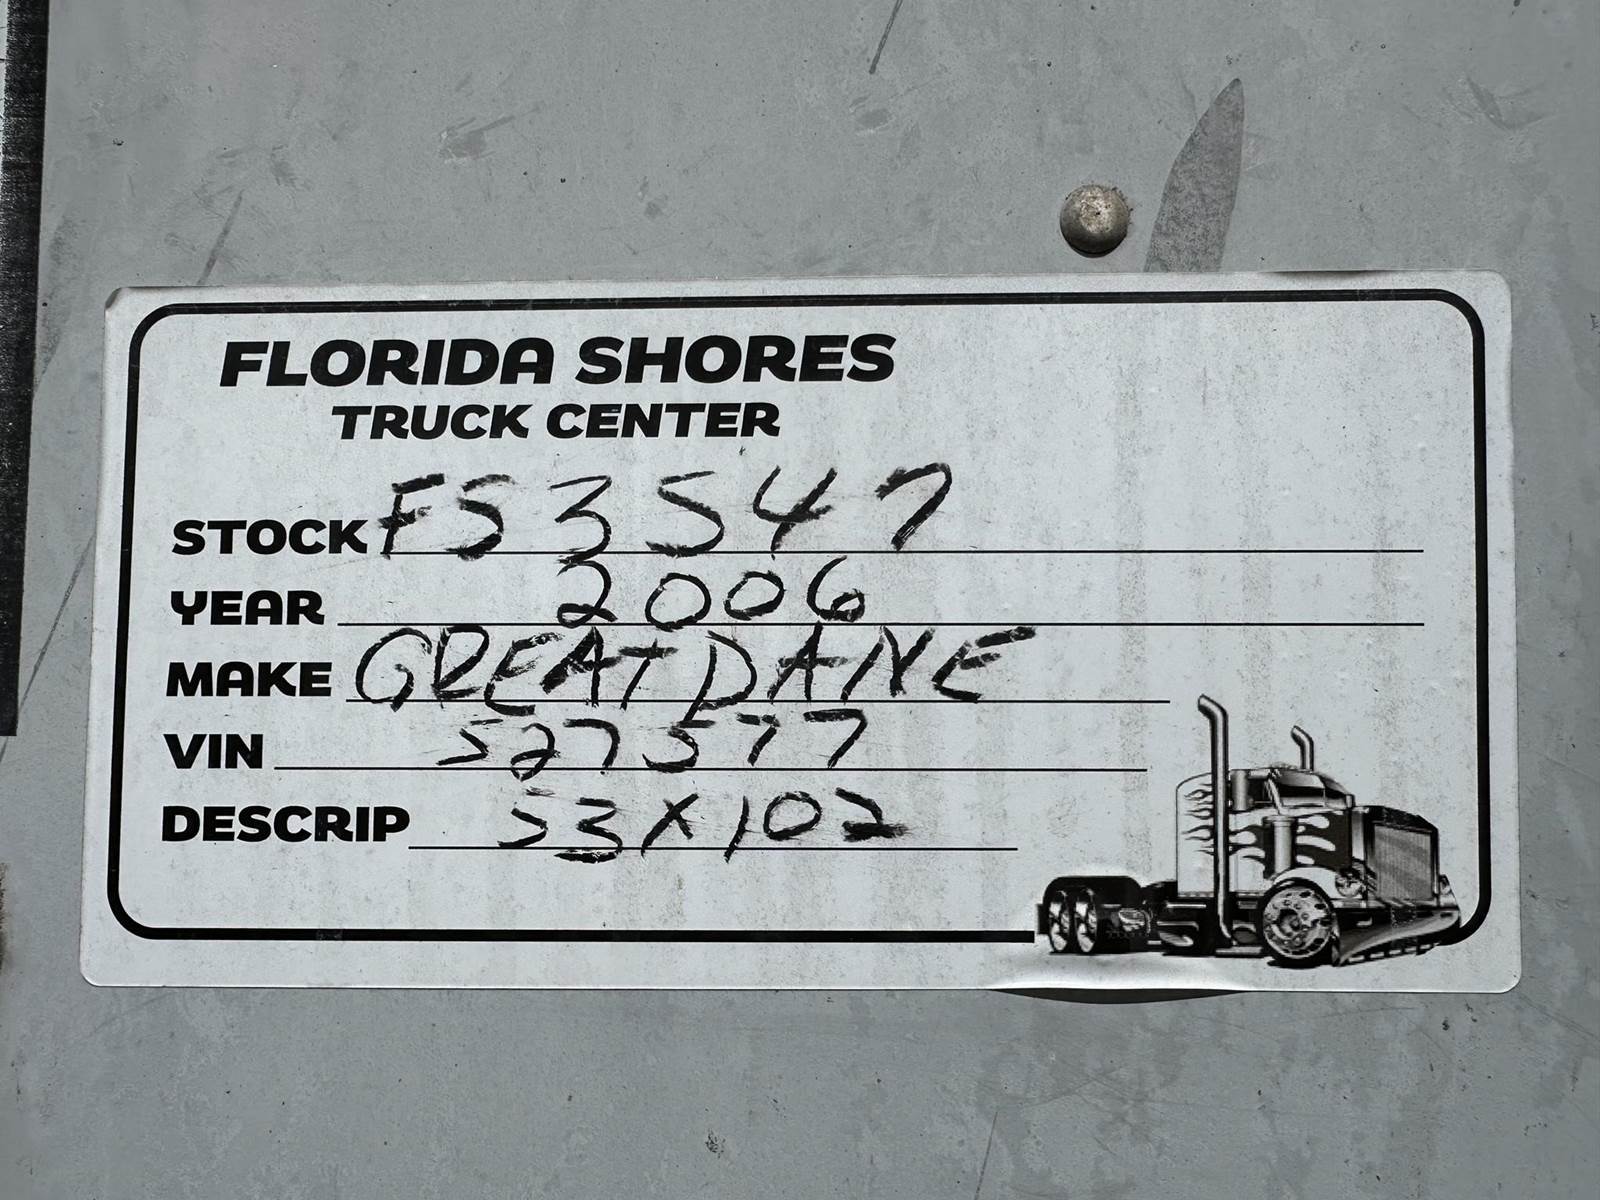 FLORIDA SHORES
TRUCK CENTER
STOCK FS3547
YEAR 2006
MAKE GREAT DANE
VIN 527577
DESCRIP 53X102